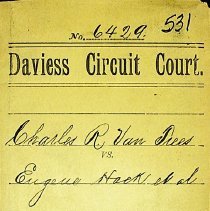 531
No. 6429
Daviess Circuit Court.
Charles R Van Trees
vs.
Eugene Hack et al